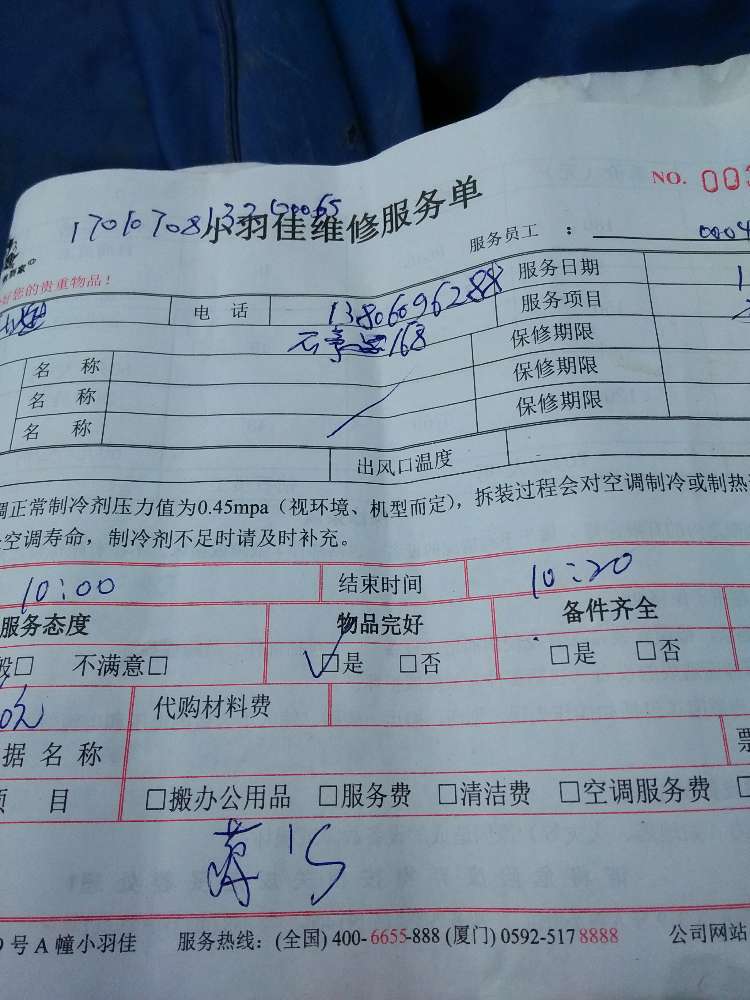 NO. 003
1701070813200065
小羽佳维修服务单
服务员工 ： 0004
好您的贵重物品！
电 话 13806096288 服务日期 1
168 服务项目
名 称 保修期限
名 称 保修期限
名 称 保修期限
出风口温度
调正常制冷剂压力值为0.45mpa（视环境、机型而定），拆装过程会对空调制冷或制热
空调寿命，制冷剂不足时请及时补充。
10:00 结束时间 10:20
服务态度 物品完好 备件齐全
般□ 不满意□ ✓□是 □否 □是 □否
0元 代购材料费
据 名 称 票
项 目 □搬办公用品 □服务费 □清洁费 □空调服务费 □
9号A幢小羽佳 服务热线：(全国) 400-6655-888 (厦门) 0592-517 8888 公司网站